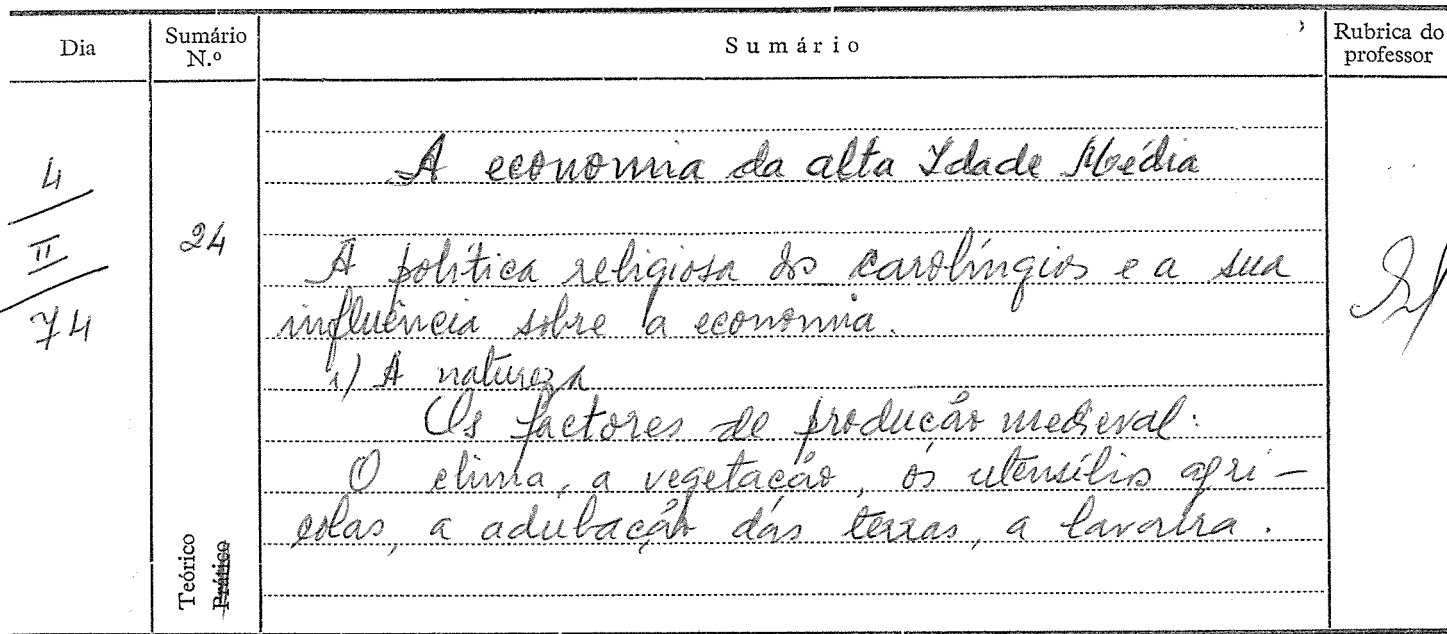 Dia
Sumário N.º
Sumário
Rubrica do professor
4
II
74
24
A economia da alta Idade Média
A política religiosa dos carolíngios e a sua
influência sobre a economia.
1) A natureza
Os factores de produção medieval:
O clima, a vegetação, os utensílios agrí-
colas, a adubação das terras, a lavoura.
Teórico
Prático